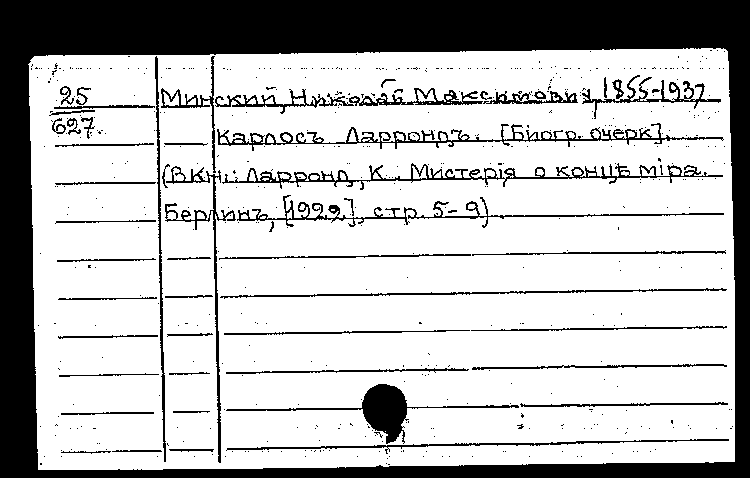 25
627.
Минский, Николай Максимович, 1855-1937
Карлосъ Ларрондъ. [Биогр. очерк].
(В кн.: Ларронд, К. Мистерія о концѣ міра.
Берлинъ, [1922], стр. 5-9).